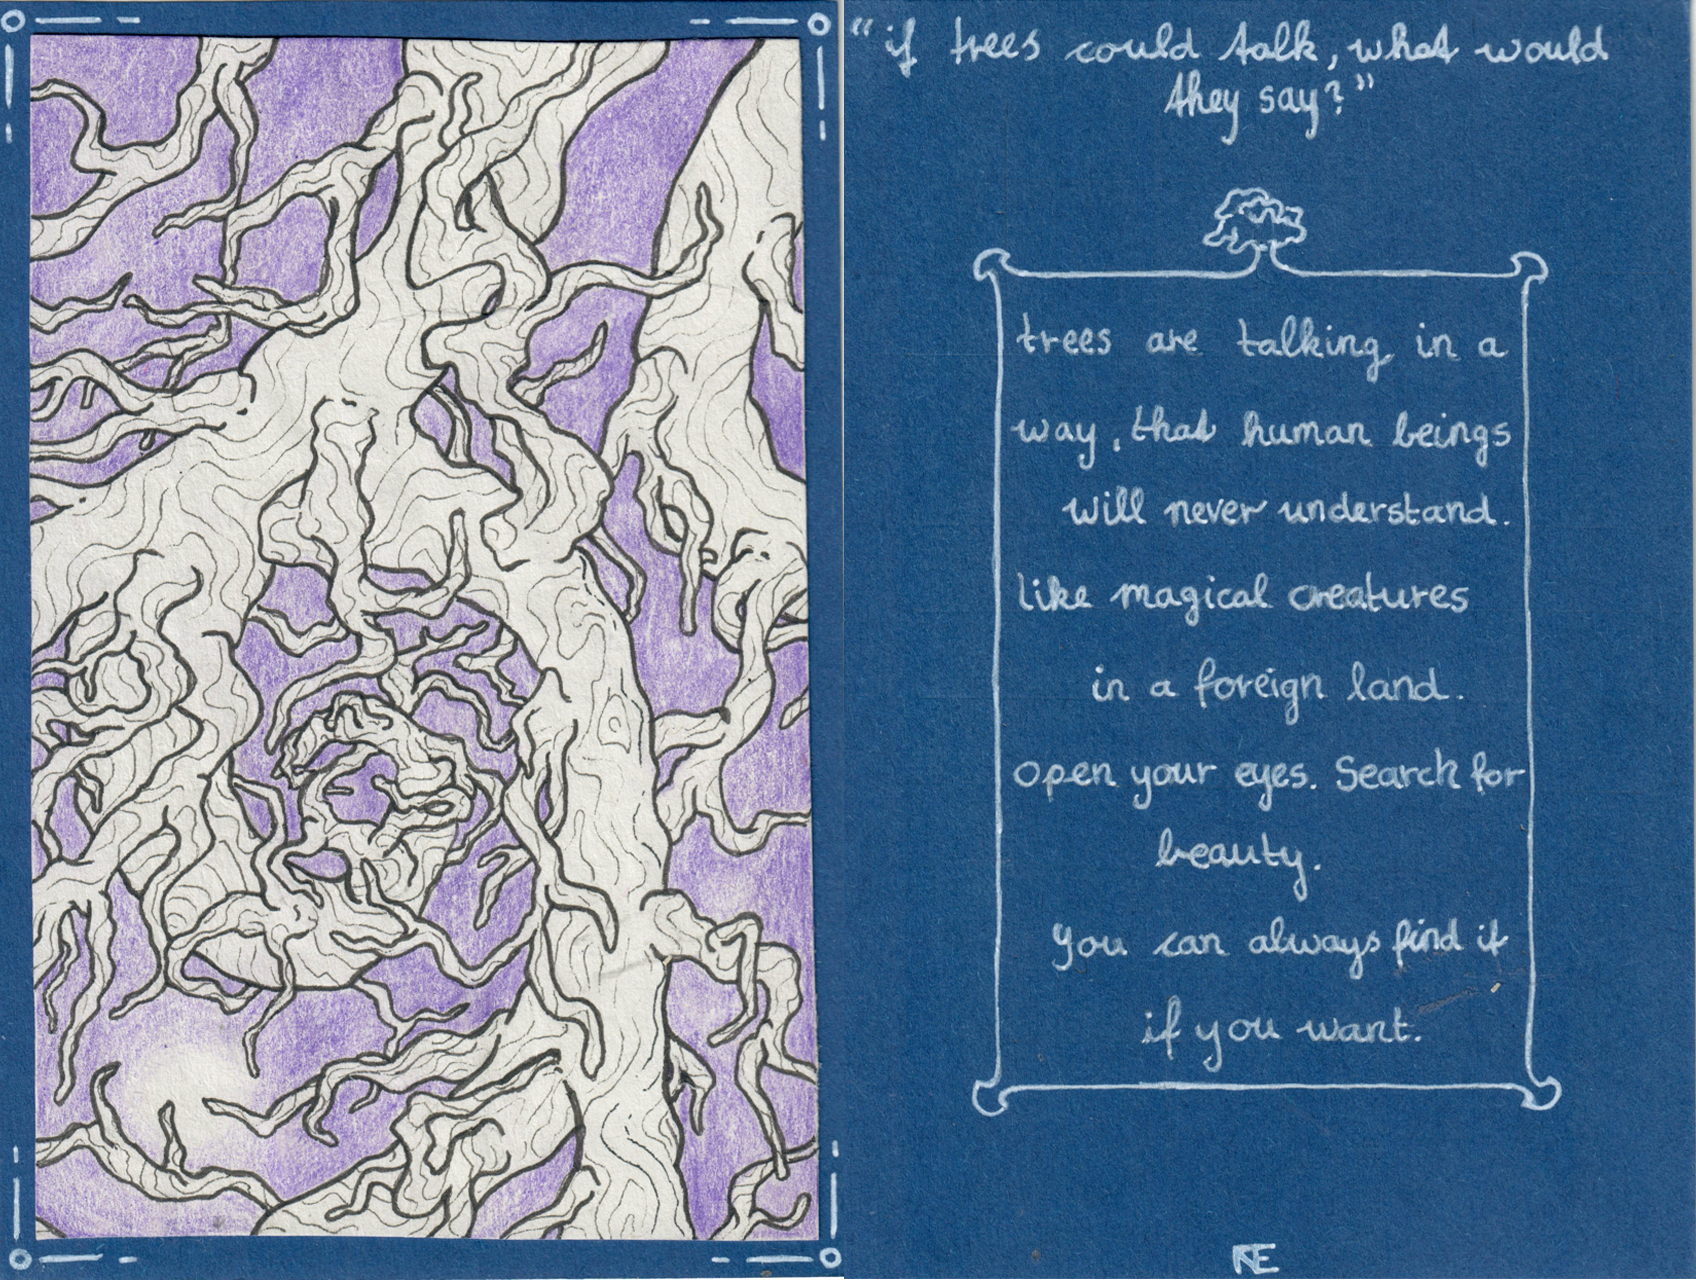 "if trees could talk, what would
they say?"
trees are talking in a
way, that human beings
will never understand.
like magical creatures
in a foreign land.
open your eyes. Search for
beauty.
you can always find it
if you want.